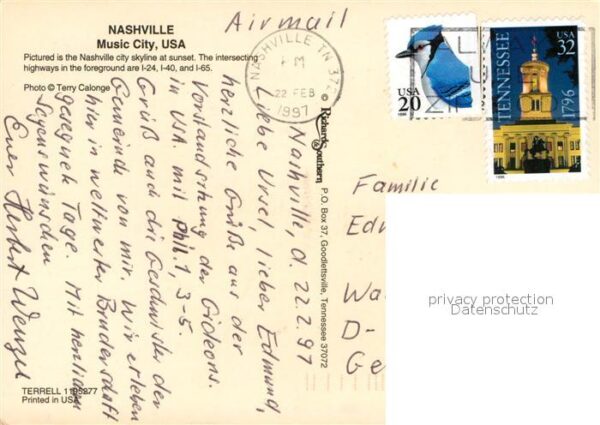 NASHVILLE
Music City, USA
Pictured is the Nashville city skyline at sunset. The intersecting
highways in the foreground are I-24, I-40, and I-65.
Photo © Terry Calonge
Airmail
NASHVILLE TN 372
PM
22 FEB
1997
USA
20
1996
USA
32
TENNESSEE
1796
1996
Nashville, d. 22.2.97
Liebe Ursel, lieber Edmund,
herzliche Grüße aus der
Vorstandsitzung der Gideons
in USA mit Phil. 1, 3-5.
Gruß auch die Geschwister der
Gemeinde von mir. Wir erleben
hier in weltweiter Bruderschaft
gesegnete Tage. Mit herzlichen
Segenswünschen
Euer Herbert Wenzel
© Richards & Southern P.O. Box 37, Goodlettsville, Tennessee 37072
Familie
Edu
Wa
D-
Ge
privacy protection
Datenschutz
TERRELL 1195277
Printed in USA